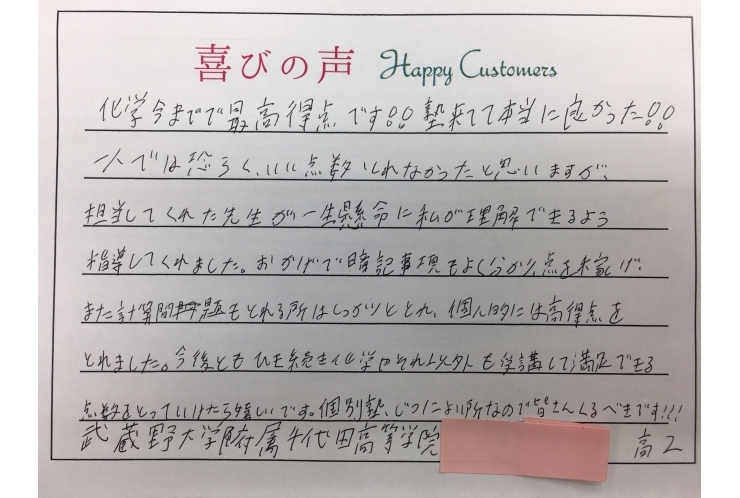 喜びの声 Happy Customers
化学今までで最高得点です!! 塾来てて本当に良かった!!
一人では恐らく、いい点数とれなかったと思いますが、
担当してくれた先生が一生懸命に私が理解できるよう
指導してくれました。おかげで暗記事項もよく分かり、点を稼げ、
また計算問題もとれる所はしっかりととれ、個人的には高得点を
とれました。今後ともひき続き化学やそれ以外も受講して満足できる
点数をとっていけたら嬉しいです。個別塾、じつによい所なので皆さんくるべきです!!!
武蔵野大学附属千代田高等学院 高2